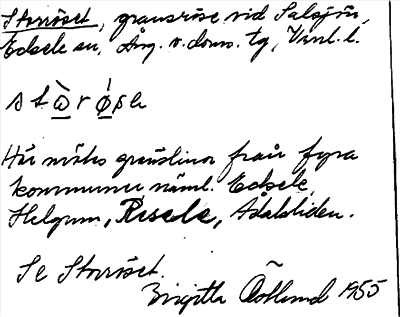 Storröset, gränsröse vid Salsjön,
Edsele sn, Ång. v. doms. tg, Vnl. l.
stὼ̲rǿ̲sə
Här mötes gränslinor från fyra
kommuner näml. Edsele,
Helgum, Resele, Ådalsliden.
Se Storröset.
Birgitta 1955